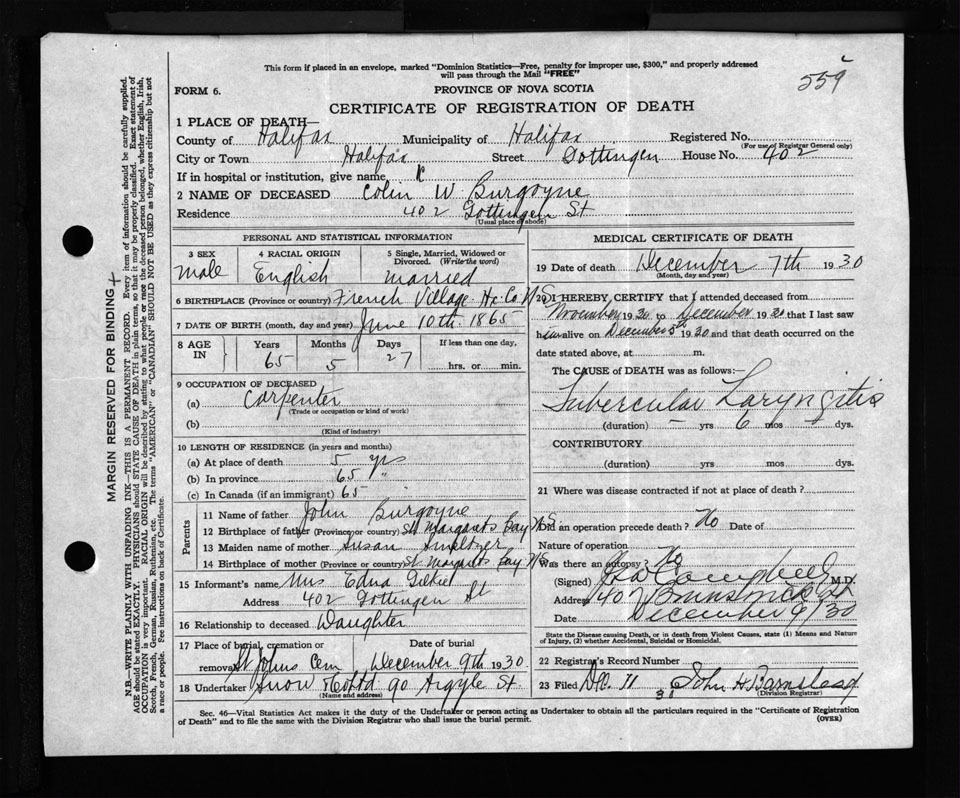 This form if placed in an envelope, marked "Dominion Statistics—Free, penalty for improper use, $300," and properly addressed
will pass through the Mail "FREE"
559
FORM 6.
PROVINCE OF NOVA SCOTIA
CERTIFICATE OF REGISTRATION OF DEATH
1 PLACE OF DEATH—
County of Halifax Municipality of Halifax Registered No.
(For use of Registrar General only)
City or Town Halifax Street Gottingen House No. 402
If in hospital or institution, give name
2 NAME OF DECEASED Colin W. Burgoyne
Residence 402 Gottingen St
(Usual place of abode)
PERSONAL AND STATISTICAL INFORMATION
3 SEX Male
4 RACIAL ORIGIN English
5 Single, Married, Widowed or Divorced. (Write the word) married
6 BIRTHPLACE (Province or country) French Village Hx. Co. N S
7 DATE OF BIRTH (month, day and year) June 10th. 1865
8 AGE IN Years 65 Months 5 Days 27 If less than one day, hrs. or min.
9 OCCUPATION OF DECEASED
(a) Carpenter
(Trade or occupation or kind of work)
(b)
(Kind of industry)
10 LENGTH OF RESIDENCE (in years and months)
(a) At place of death 5 yrs
(b) In province 65 "
(c) In Canada (if an immigrant) 65 "
Parents
11 Name of father John Burgoyne
12 Birthplace of father (Province or country) St Margarets Bay N S
13 Maiden name of mother Susan Smeltzer
14 Birthplace of mother (Province or country) St Margarets Bay N S
15 Informant's name Mrs Edna
Address 402 Gottingen St
16 Relationship to deceased Daughter
17 Place of burial, cremation or removal St Johns Cem Date of burial December 9th 1930
18 Undertaker Snow & Co Ltd 90 Argyle St
(Name and address)
MEDICAL CERTIFICATE OF DEATH
19 Date of death December 7th 1930
(Month, day and year)
20 I HEREBY CERTIFY that I attended deceased from
November 1930 to December 1930 that I last saw
him alive on December 5th 1930 and that death occurred on the
date stated above, at m.
The CAUSE of DEATH was as follows:—
Tubercular Laryngitis
(duration) – yrs 6 mos – dys.
CONTRIBUTORY
(duration) yrs mos dys.
21 Where was disease contracted if not at place of death?
Did an operation precede death? No Date of
Nature of operation
Was there an autopsy? No
(Signed) Campbell M.D.
Address 140 Brunswick St
Date December 9/30
State the Disease causing Death, or in death from Violent Causes, state (1) Means and Nature
of Injury, (2) whether Accidental, Suicidal or Homicidal.
22 Registrar's Record Number
23 Filed Dec. 11 31 John H. Barnstead
(Division Registrar)
Sec. 46—Vital Statistics Act makes it the duty of the Undertaker or person acting as Undertaker to obtain all the particulars required in the "Certificate of Registration
of Death" and to file the same with the Division Registrar who shall issue the burial permit.
(OVER)
MARGIN RESERVED FOR BINDING
N.B.—WRITE PLAINLY WITH UNFADING INK—THIS IS A PERMANENT RECORD. Every item of information should be carefully supplied.
AGE should be stated EXACTLY. PHYSICIANS should STATE CAUSE OF DEATH in plain terms, so that it may be properly classified. Exact statement of
OCCUPATION is very important. RACIAL ORIGIN will be described by stating to what people or race the deceased person belonged, whether English, Irish,
Scotch, French, German, Russian, Ruthenian, etc. The terms "AMERICAN" or "CANADIAN" SHOULD NOT BE USED as they express citizenship but not
a race or people. See instructions on back of Certificate.